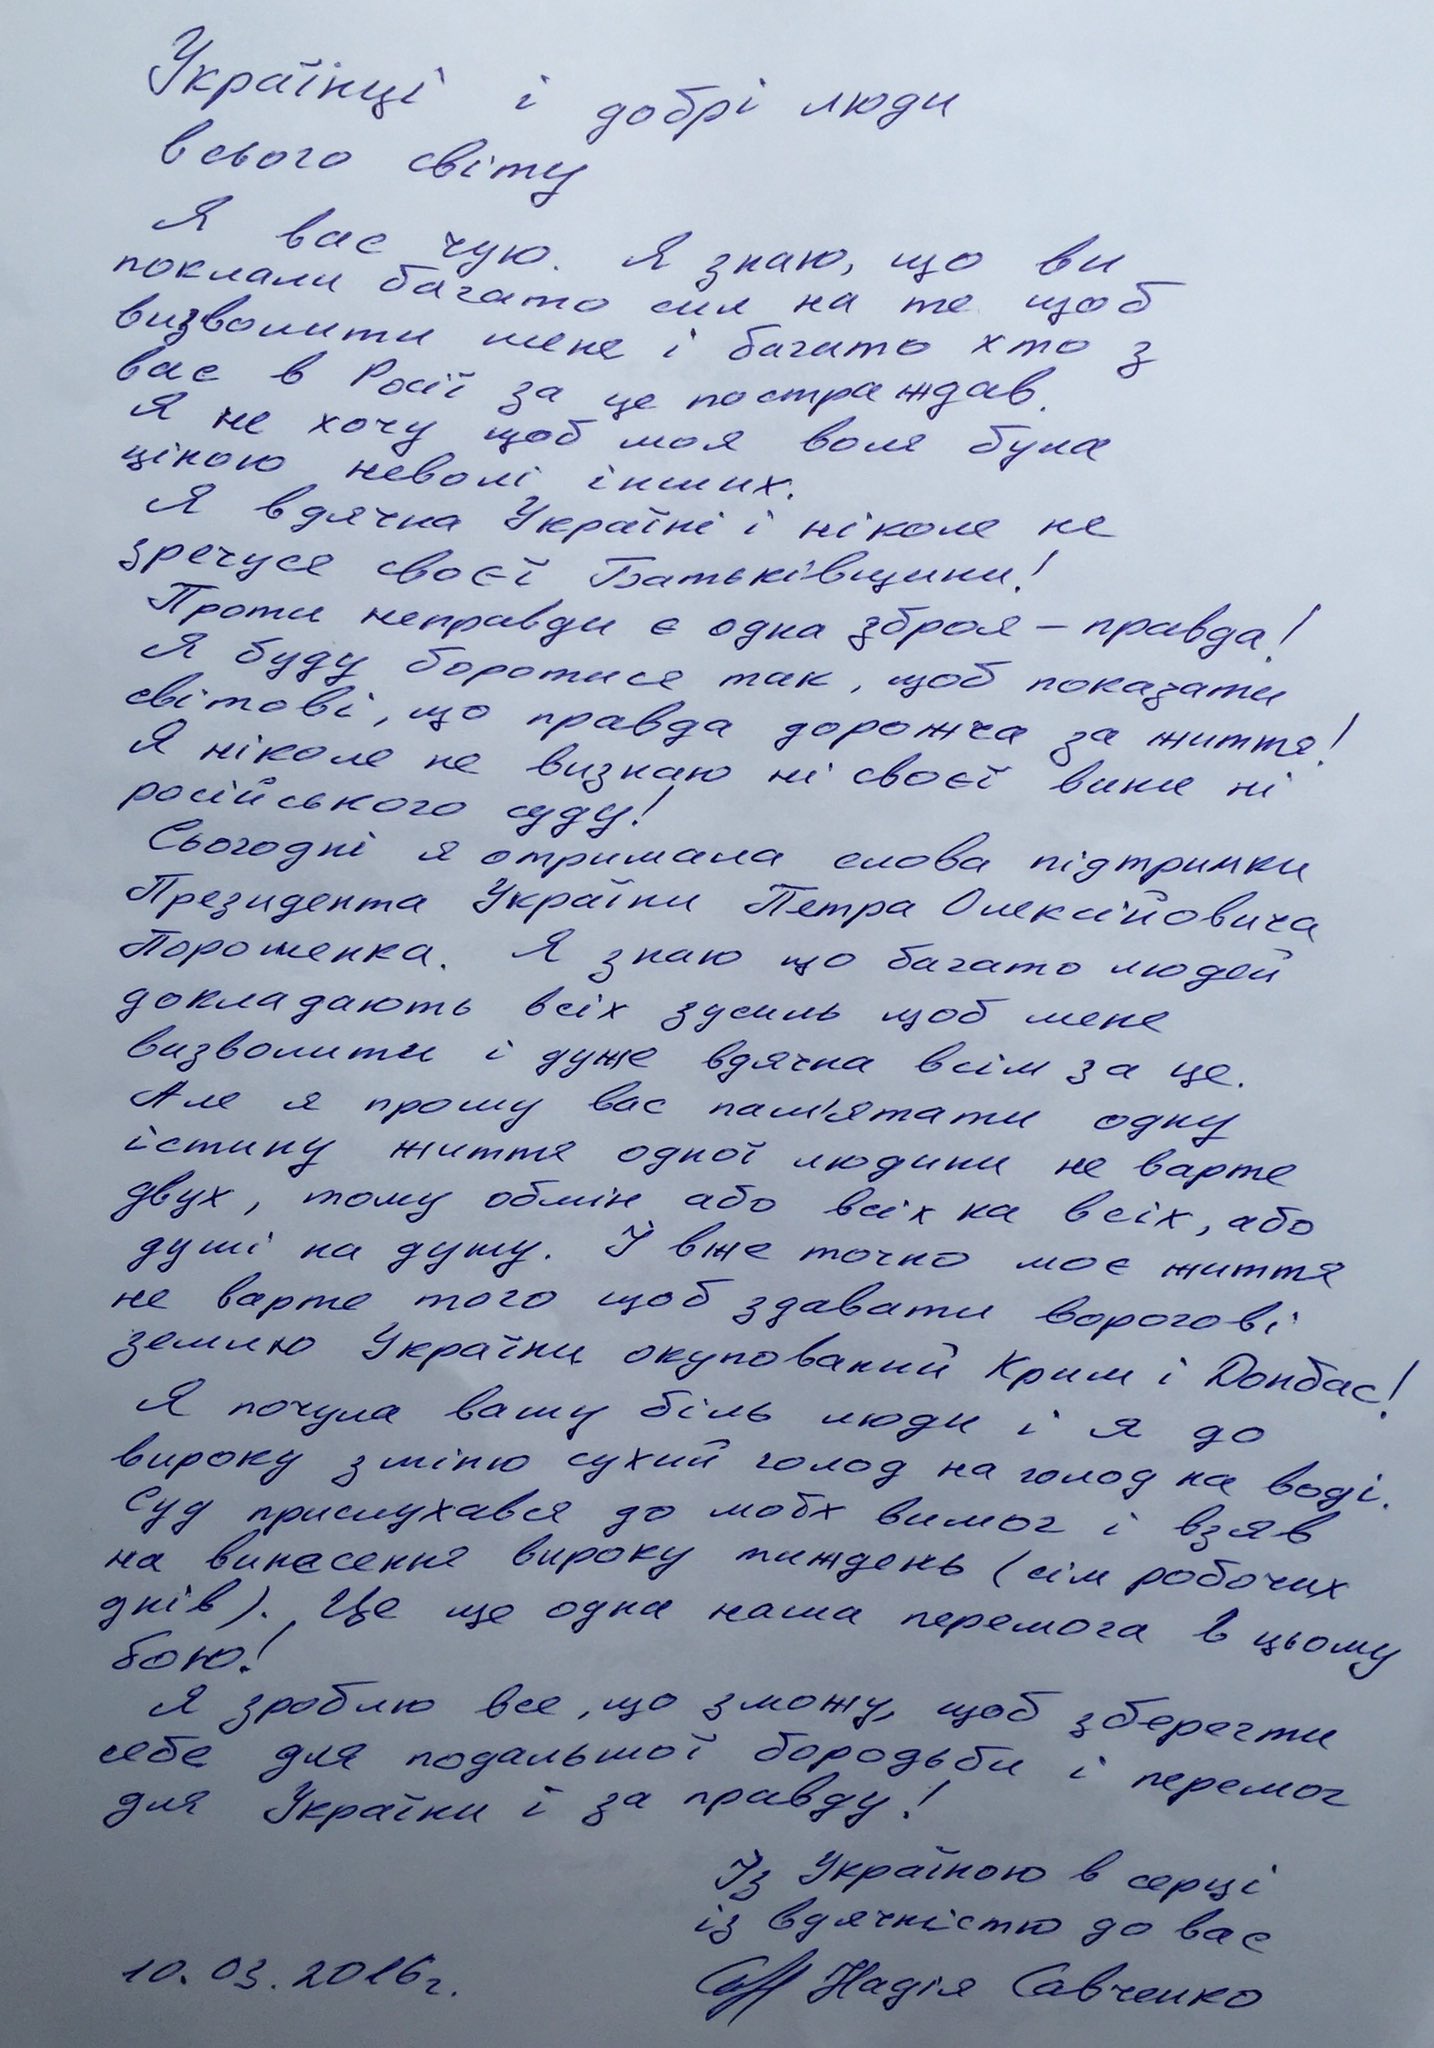 Українці і добрі люди
всього світу
Я вас чую. Я знаю, що ви
поклали багато сил на те щоб
визволити мене і багато хто з
вас в Росії за це постраждав.
Я не хочу щоб моя воля була
ціною неволі інших.
Я вдячна Україні і ніколе не
зречуся своєї Батьківщини!
Проти неправди є одна зброя – правда!
Я буду боротися так, щоб показати
світові, що правда дорожча за життя!
Я ніколе не визнаю ні своєї вини ні
російського суду!
Сьогодні я отримала слова підтримки
Президента України Петра Олексійовича
Порошенка. Я знаю що багато людей
докладають всіх зусиль щоб мене
визволити і дуже вдячна всім за це.
Але я прошу вас пам'ятати одну
істину життя одної людини не варте
двух, тому обмін або всіх на всіх, або
душі на душу. І вже точно моє життя
не варте того щоб здавати ворогові
землю України окупований Крим і Донбас!
Я почула вашу біль люди і я до
вироку зміню сухий голод на голод на воді.
Суд прислухався до моїх вимог і взяв
на винесення вироку тиждень (сім робочих
днів). Це ще одна наша перемога в цьому
бою!
Я зроблю все, що зможу, щоб зберегти
себе для подальшої бородьби і перемог
для України і за правду!
Із Україною в серці
із вдячністю до вас
10.03.2016г. Надія Савченко